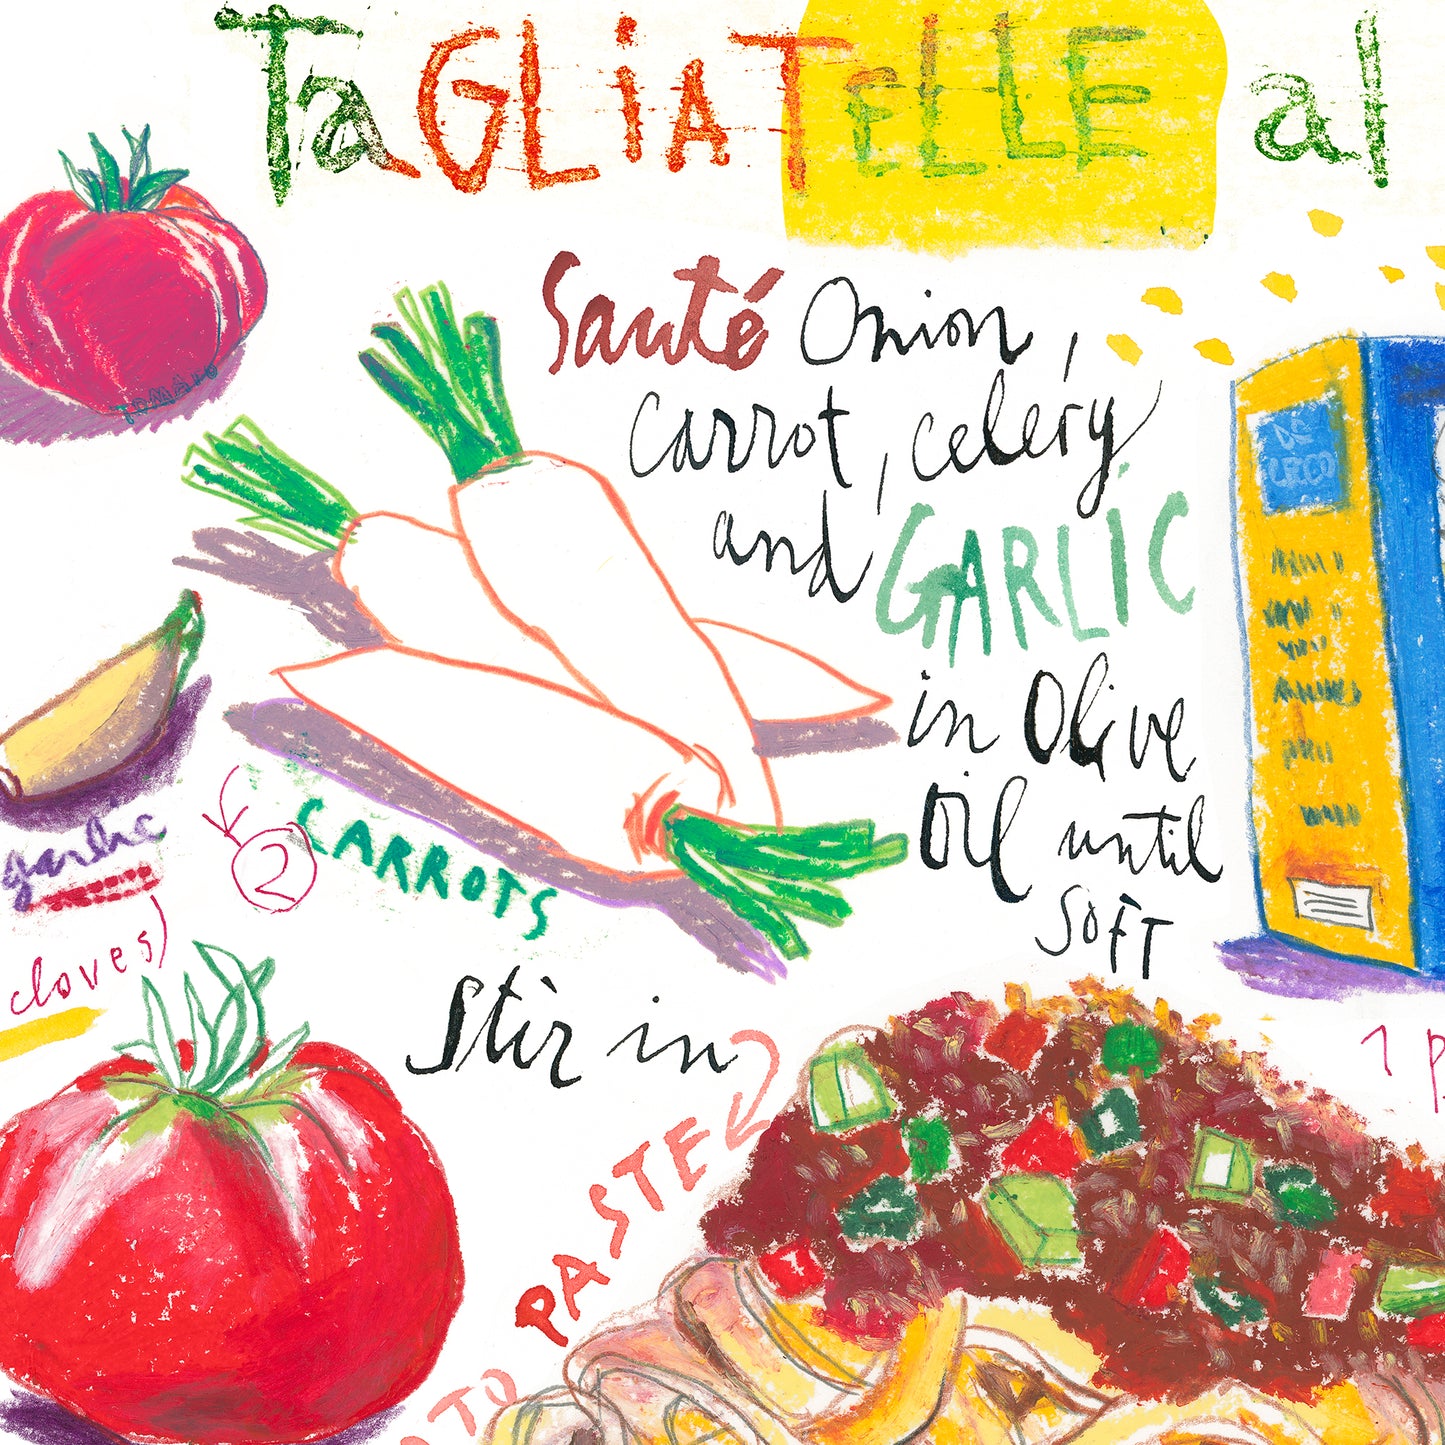 TaGLiATELLE al
TOMATO
Sauté Onion,
carrot, celery
and GARLIC
in Olive
Oil until
SOFT
DE
CECO
garlic
cloves)
2
CARROTS
Stir in
TO PASTE
1 p